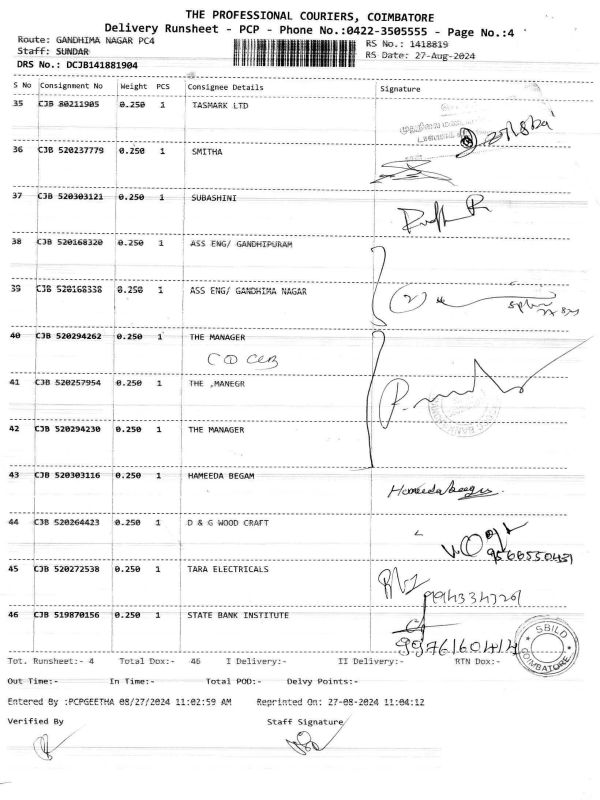 THE PROFESSIONAL COURIERS, COIMBATORE
Delivery Runsheet - PCP - Phone No.:0422-3505555 - Page No.:4
Route: GANDHIMA NAGAR PC4 RS No.: 1418819
Staff: SUNDAR RS Date: 27-Aug-2024
DRS No.: DCJB141881904
S No Consignment No Weight PCS Consignee Details Signature
35 CJB 80211905 0.250 1 TASMARK LTD
36 CJB 520237779 0.250 1 SMITHA
37 CJB 520303121 0.250 1 SUBASHINI
38 CJB 520168320 0.250 1 ASS ENG/ GANDHIPURAM
39 CJB 520168338 0.250 1 ASS ENG/ GANDHIMA NAGAR
40 CJB 520294262 0.250 1 THE MANAGER
41 CJB 520257954 0.250 1 THE ,MANEGR
42 CJB 520294230 0.250 1 THE MANAGER
43 CJB 520303116 0.250 1 HAMEEDA BEGAM
Hameeda begum
44 CJB 520264423 0.250 1 D & G WOOD CRAFT
45 CJB 520272538 0.250 1 TARA ELECTRICALS
46 CJB 519870156 0.250 1 STATE BANK INSTITUTE
9976160414
SBILD
COIMBATORE
Tot. Runsheet:- 4 Total Dox:- 46 I Delivery:- II Delivery:- RTN Dox:-
Out Time:- In Time:- Total POD:- Delvy Points:-
Entered By :PCPGEETHA 08/27/2024 11:02:59 AM Reprinted On: 27-08-2024 11:04:12
Verified By Staff Signature